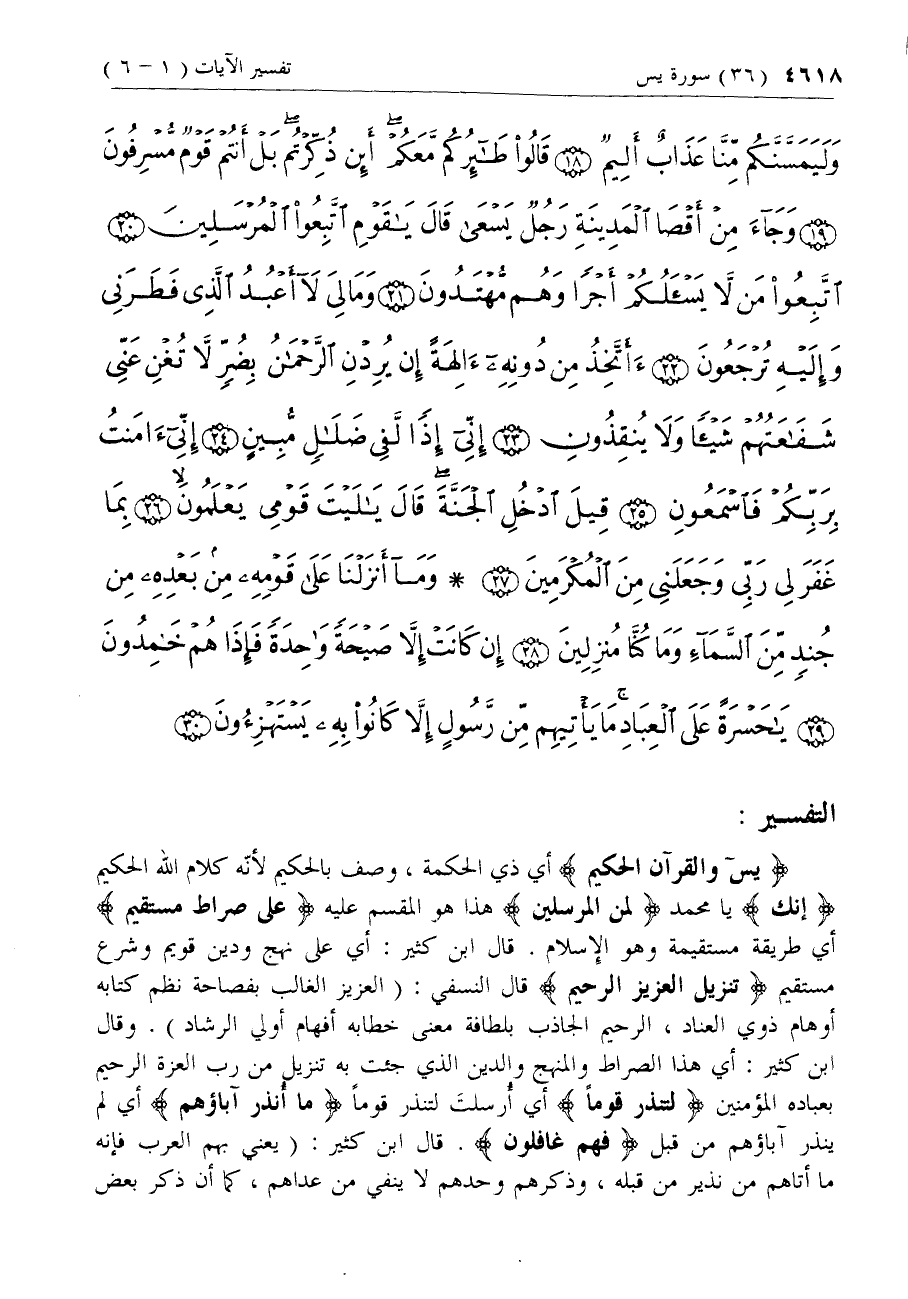 ٤٦١٨ (٣٦) سورة يس تفسير الآيات ( ١ - ٦ )
وَلَيَمَسَّنَّكُم مِّنَّا عَذَابٌ أَلِيمٌ ﴿١٨﴾ قَالُوا۟ طَـٰٓئِرُكُم مَّعَكُمْ ۖ أَئِن ذُكِّرْتُم ۖ بَلْ أَنتُمْ قَوْمٌ مُّسْرِفُونَ
﴿١٩﴾ وَجَآءَ مِنْ أَقْصَا ٱلْمَدِينَةِ رَجُلٌ يَسْعَىٰ قَالَ يَـٰقَوْمِ ٱتَّبِعُوا۟ ٱلْمُرْسَلِينَ ﴿٢٠﴾
ٱتَّبِعُوا۟ مَن لَّا يَسْـَٔلُكُمْ أَجْرًا وَهُم مُّهْتَدُونَ ﴿٢١﴾ وَمَالِىَ لَآ أَعْبُدُ ٱلَّذِى فَطَرَنِى
وَإِلَيْهِ تُرْجَعُونَ ﴿٢٢﴾ ءَأَتَّخِذُ مِن دُونِهِۦٓ ءَالِهَةً إِن يُرِدْنِ ٱلرَّحْمَـٰنُ بِضُرٍّ لَّا تُغْنِ عَنِّى
شَفَـٰعَتُهُمْ شَيْـًٔا وَلَا يُنقِذُونِ ﴿٢٣﴾ إِنِّىٓ إِذًا لَّفِى ضَلَـٰلٍ مُّبِينٍ ﴿٢٤﴾ إِنِّىٓ ءَامَنتُ
بِرَبِّكُمْ فَٱسْمَعُونِ ﴿٢٥﴾ قِيلَ ٱدْخُلِ ٱلْجَنَّةَ ۖ قَالَ يَـٰلَيْتَ قَوْمِى يَعْلَمُونَ ﴿٢٦﴾ بِمَا
غَفَرَ لِى رَبِّى وَجَعَلَنِى مِنَ ٱلْمُكْرَمِينَ ﴿٢٧﴾ * وَمَآ أَنزَلْنَا عَلَىٰ قَوْمِهِۦ مِنۢ بَعْدِهِۦ مِن
جُندٍ مِّنَ ٱلسَّمَآءِ وَمَا كُنَّا مُنزِلِينَ ﴿٢٨﴾ إِن كَانَتْ إِلَّا صَيْحَةً وَٰحِدَةً فَإِذَا هُمْ خَـٰمِدُونَ
﴿٢٩﴾ يَـٰحَسْرَةً عَلَى ٱلْعِبَادِ ۚ مَا يَأْتِيهِم مِّن رَّسُولٍ إِلَّا كَانُوا۟ بِهِۦ يَسْتَهْزِءُونَ ﴿٣٠﴾
التفسير :
﴿ يسٓ والقرآن الحكيم ﴾ أي ذي الحكمة ، وصف بالحكيم لأنّه كلام الله الحكيم
﴿ إنك ﴾ يا محمد ﴿ لمن المرسلين ﴾ هذا هو المقسم عليه ﴿ على صراط مستقيم ﴾
أي طريقة مستقيمة وهو الإسلام . قال ابن كثير : أي على نهج ودين قويم وشرع
مستقيم ﴿ تنزيل العزيز الرحيم ﴾ قال النسفي : ( العزيز الغالب بفصاحة نظم كتابه
أوهام ذوي العناد ، الرحيم الجاذب بلطافة معنى خطابه أفهام أولي الرشاد ) . وقال
ابن كثير : أي هذا الصراط والمنهج والدين الذي جئت به تنزيل من رب العزة الرحيم
بعباده المؤمنين ﴿ لتنذر قوماً ﴾ أي أُرسلتَ لتنذر قوماً ﴿ ما أُنذر آباؤهم ﴾ أي لم
ينذر آباؤهم من قبل ﴿ فهم غافلون ﴾ . قال ابن كثير : ( يعني بهم العرب فإنه
ما أتاهم من نذير من قبله ، وذكرهم وحدهم لا ينفي من عداهم ، كما أن ذكر بعض